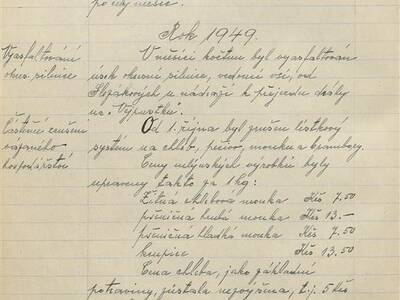 po dvj mešíc.
Rok 1949.
Vyasfaltování
okres. silnice
V měsíci květnu byl vyasfaltován
úsek okresní silnice, vedoucí vsí, od
Slezákových u nádraží k přejezdu dráhy
na "Vypustké".
Částečné zrušení
vázaného
hospodářství
Od 1. října byl zrušen lístkový
systém na chleb, pečivo, mouku a brambory.
Ceny mlýnských výrobků byly
upraveny takto za 1 kg:
Žitná chlebová mouka Kčs 7.50
pšeničná hrubá mouka Kčs 13.—
pšeničná hladká mouka Kčs 7.50
krupice Kčs 13.50
Cena chleba, jako základní
potraviny, zůstala nezvýšena, t.j. 5 Kčs